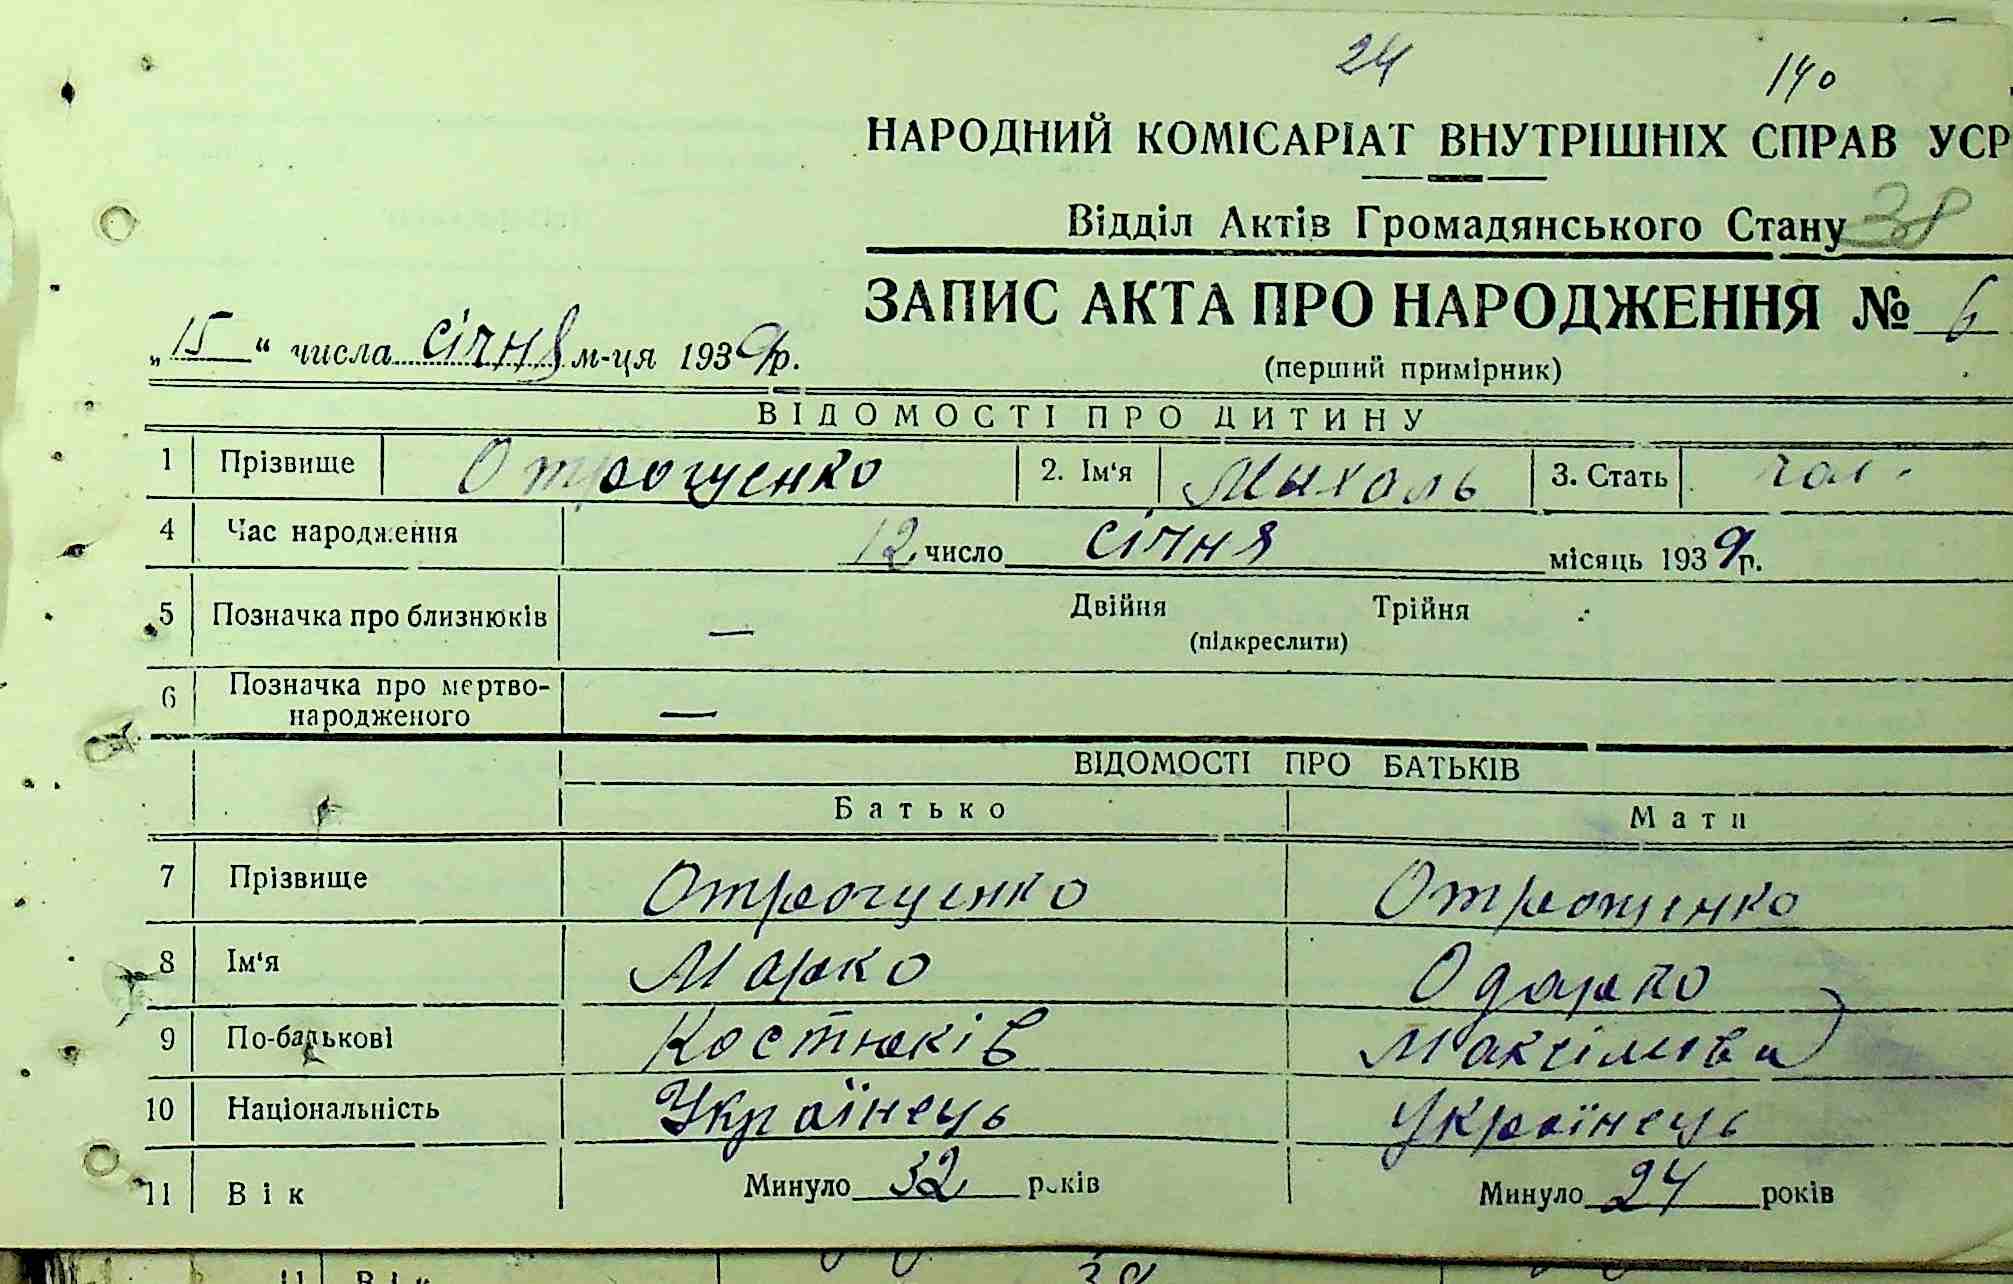 24 140
НАРОДНИЙ КОМІСАРІАТ ВНУТРІШНІХ СПРАВ УСР
Відділ Актів Громадянського Стану 38
ЗАПИС АКТА ПРО НАРОДЖЕННЯ № 6
„15“ числа січня м-ця 1939р.
(перший примірник)
ВІДОМОСТІ ПРО ДИТИНУ
1 Прізвище Отрощенко 2. Ім‘я Михаль 3. Стать чол.
4 Час народження 12 число січня місяць 1939р.
5 Позначка про близнюків — Двійня Трійня
(підкреслити)
6 Позначка про мертво-
народженого —
ВІДОМОСТІ ПРО БАТЬКІВ
Батько Мати
7 Прізвище Отрощенко Отрощенко
8 Ім‘я Марко Одарко
9 По-батькові Костюків
10 Національність Українець Українець
11 Вік Минуло 32 років Минуло 24 років
11 Вік 32